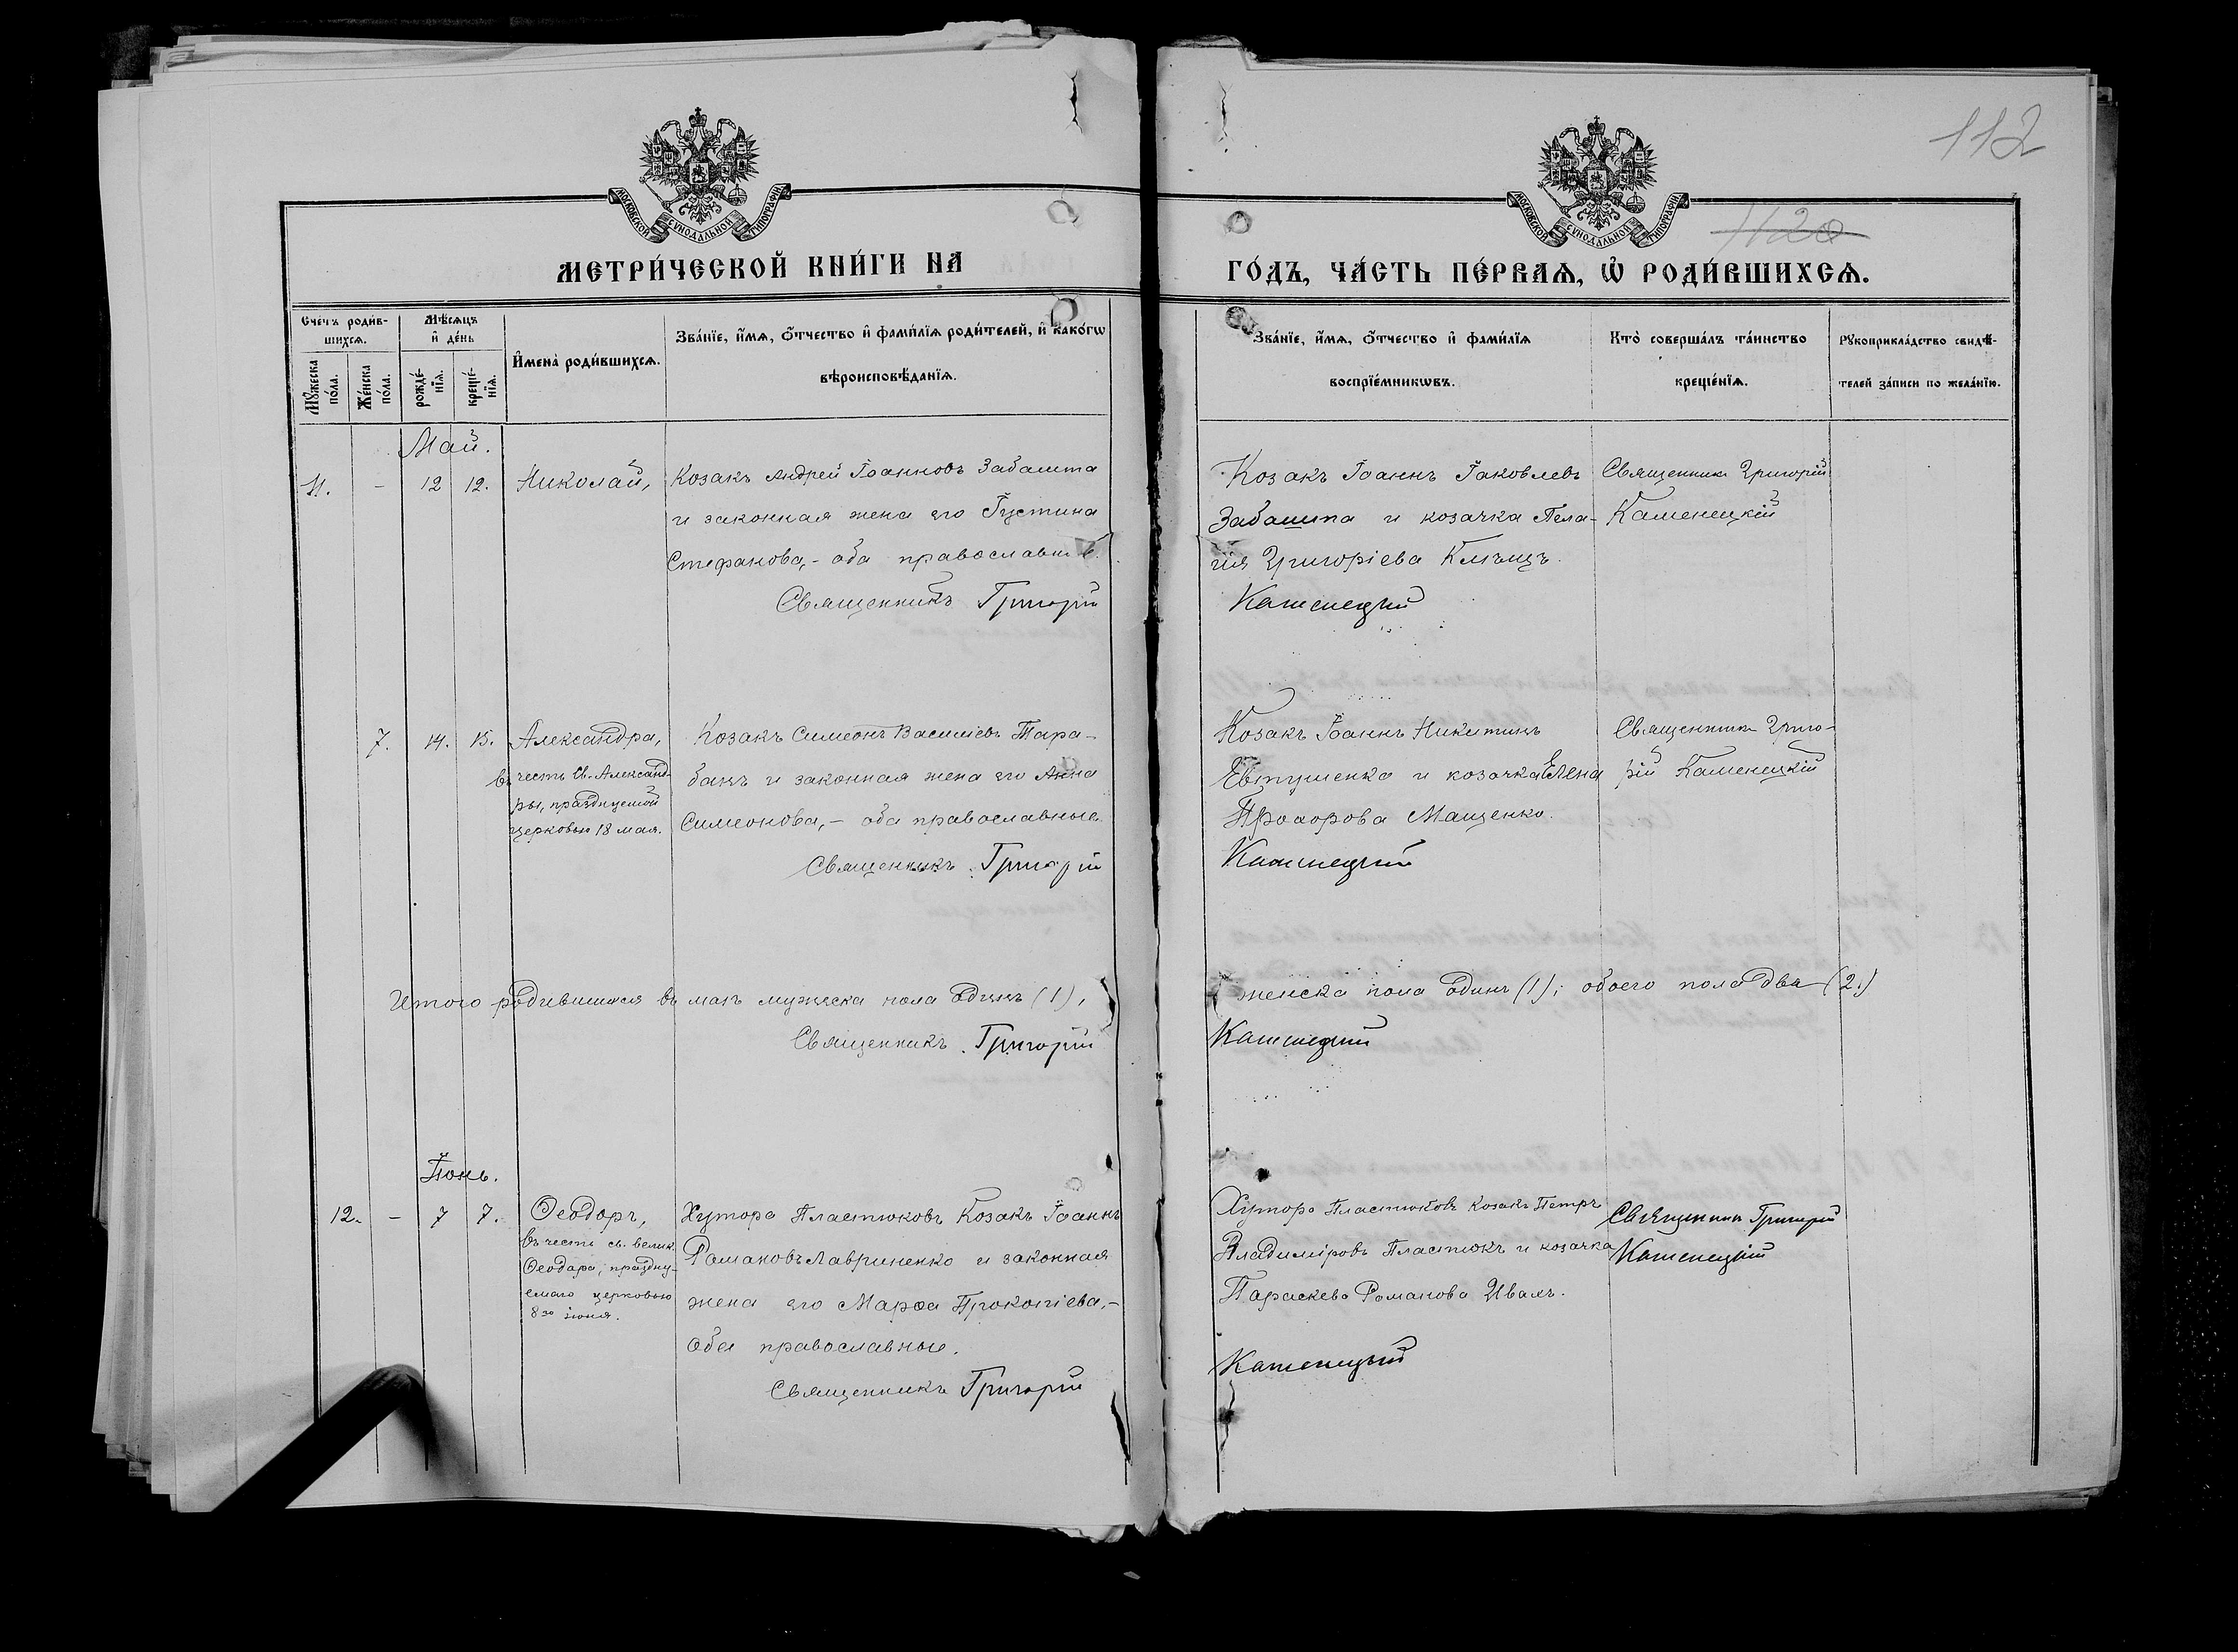 112
1120
МОСКОВСКОЙ СУНОДАЛЬНОЙ ТИПОГРАФІИ
МОСКОВСКОЙ СУНОДАЛЬНОЙ ТИПОГРАФІИ
МЕТРИ́ЧЕСКОЙ КНИ́ГИ НА
ГО́ДЪ, ЧА́СТЬ ПЕ́РВАѦ, Ѽ РОДИ́ВШИХСѦ.
Сче́тъ роди́в-
шихсѧ.
Мꙋ́жеска
по́ла.
Же́нска
по́ла.
Мѣ́сѧцъ
и҆ де́нь
рожде́-
нїѧ.
креще́-
нїѧ.
И҆мена̀ роди́вшихсѧ.
Зва́нїе, и҆́мѧ, ѻ҆́тчество и҆ фами́лїѧ роди́телей, и҆ како́гѡ
вѣроисповѣ́данїѧ.
Зва́нїе, и҆́мѧ, ѻ҆́тчество и҆ фами́лїѧ
воспрїе́мникѡвъ.
Кто̀ соверша́лъ та́инство
креще́нїѧ.
Рꙋкоприкла́дство свидѣ́-
телей за́писи по жела́нїю.
Май.
11. - 12 12. Николай,
Козакъ Андрей Іоанновъ Забашта
и законная жена его Іустина
Стефанова, - оба православные.
Священникъ Григорій
Козакъ Іоаннъ Іаковлевъ
Забашта и козачка Пела-
гія Григоріева
Каменецкій
Священникъ Григорій
Каменецкій
7. 14. 15. Александра,
въ честь Св. Александ-
ры, празднуемой
церковью 18 мая.
Козакъ Симеонъ Василіевъ Тара-
банъ и законная жена его Анна
Симеонова, - оба православные.
Священникъ Григорій
Козакъ Іоаннъ Никитинъ
Евтушенко и козачка Елена
Прохорова Мащенко.
Каменецкій
Священникъ Григо-
рій Каменецкій
Итого родившихся въ маѣ мужеска пола одинъ (1),
женска пола одинъ (1); обоего пола два (2.)
Священникъ Григорій
Каменецкій
Іюнь.
12. - 7 7. Ѳеодоръ,
въ честь св. велик.
Ѳеодора, праздну-
емаго церковью
8го іюня.
Хутора Пластюковъ Козакъ Іоаннъ
Романовъ Лавриненко и законная
жена его Марѳа Прокопіева, -
оба православные.
Священникъ Григорій
Хутора Пластюковъ козакъ Петръ
Владиміровъ Пластюкъ и козачка
Параскева Романова Иваль.
Каменецкій
Священникъ Григорій
Каменецкій